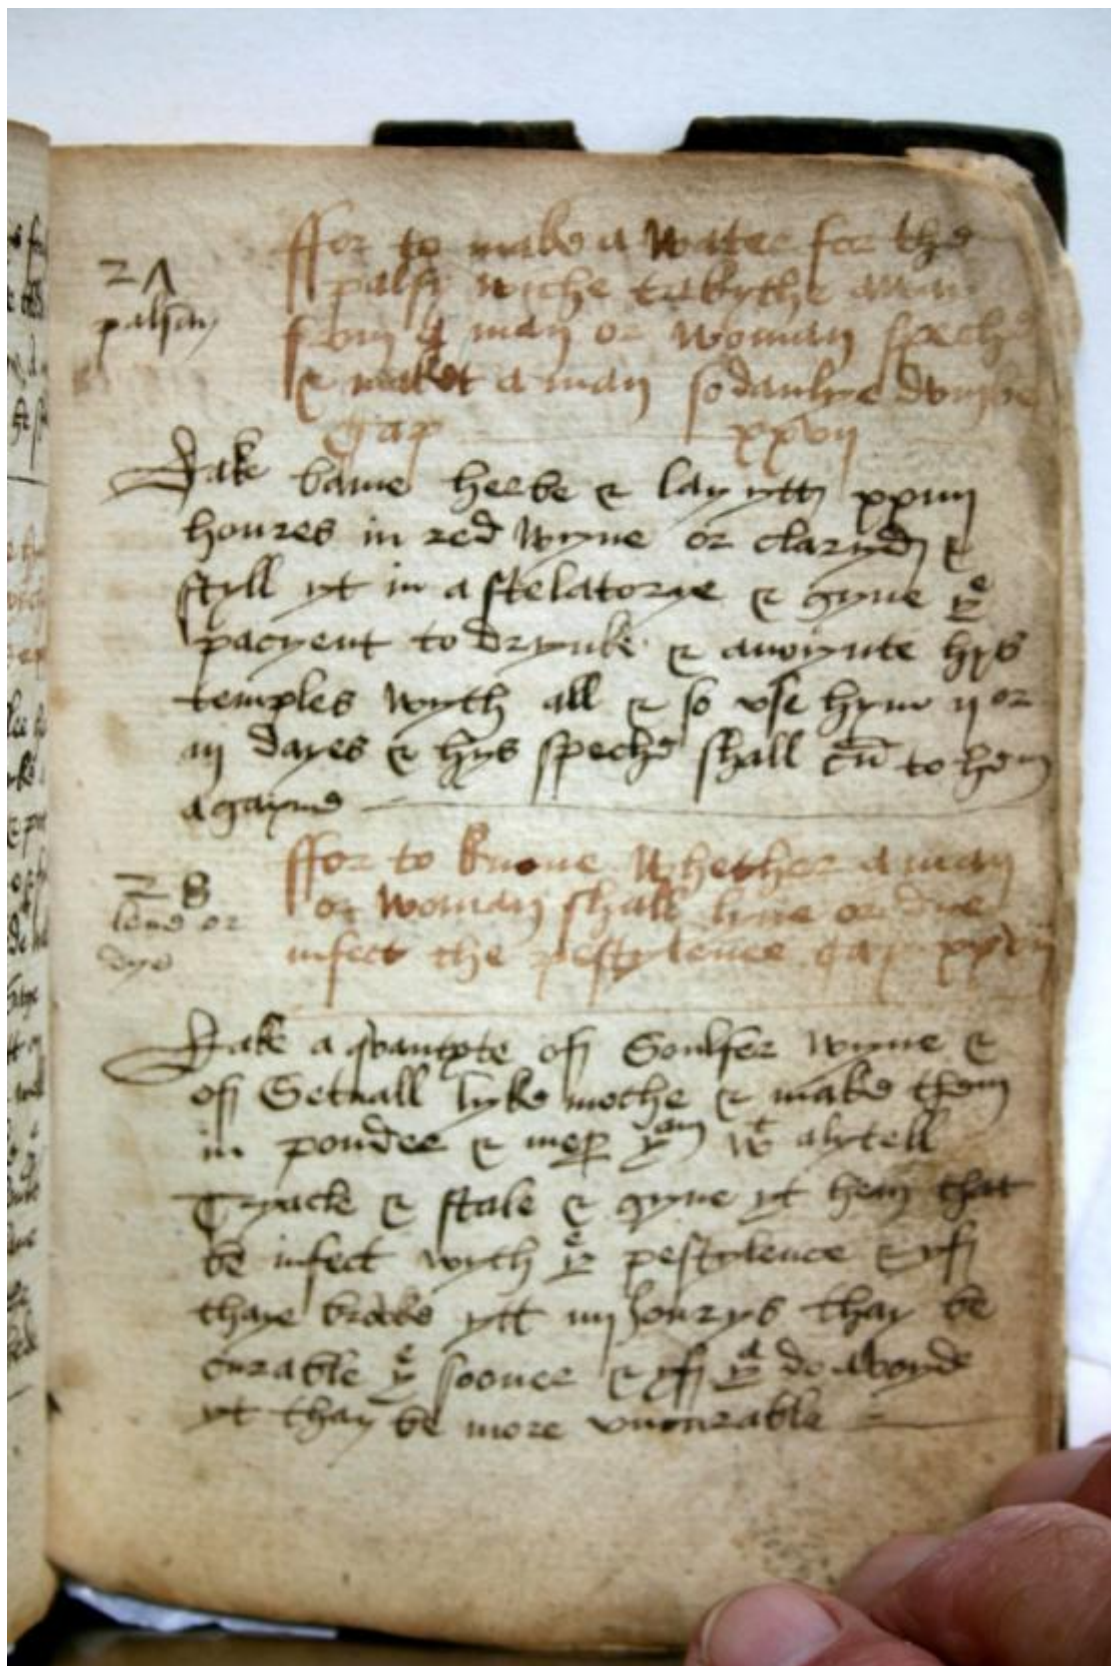 ffor to make a water for the
27
palsay
palsy wiche takythe away
from a man or woman speche
& maket a man sodanlye
Cap xxvii
Take bame herbe & lay ytt xxiiii
houres in red wyne or claryd &
styll yt in a stelatorye & gyve ye
pacyent to drynke & anoynte hys
temples wyth all & so use hym ii or
iii dayes & hys speche shall cū to hem
agayne
28
leue or
dye
ffor to knowe whether a man
or woman shall lyve or dye
infect the pestylence Cap xxviii
Take a quantyte off wyne &
off Setuall lyke moche & make them
in pouder & yam wt alytell
Tryacle & stale & gyve yt hem that
be infect wyth ye pestylence & yff
thaye ytt iiii houres thay be
curable ye sooner & yff ya do
yt thay be more uncurable